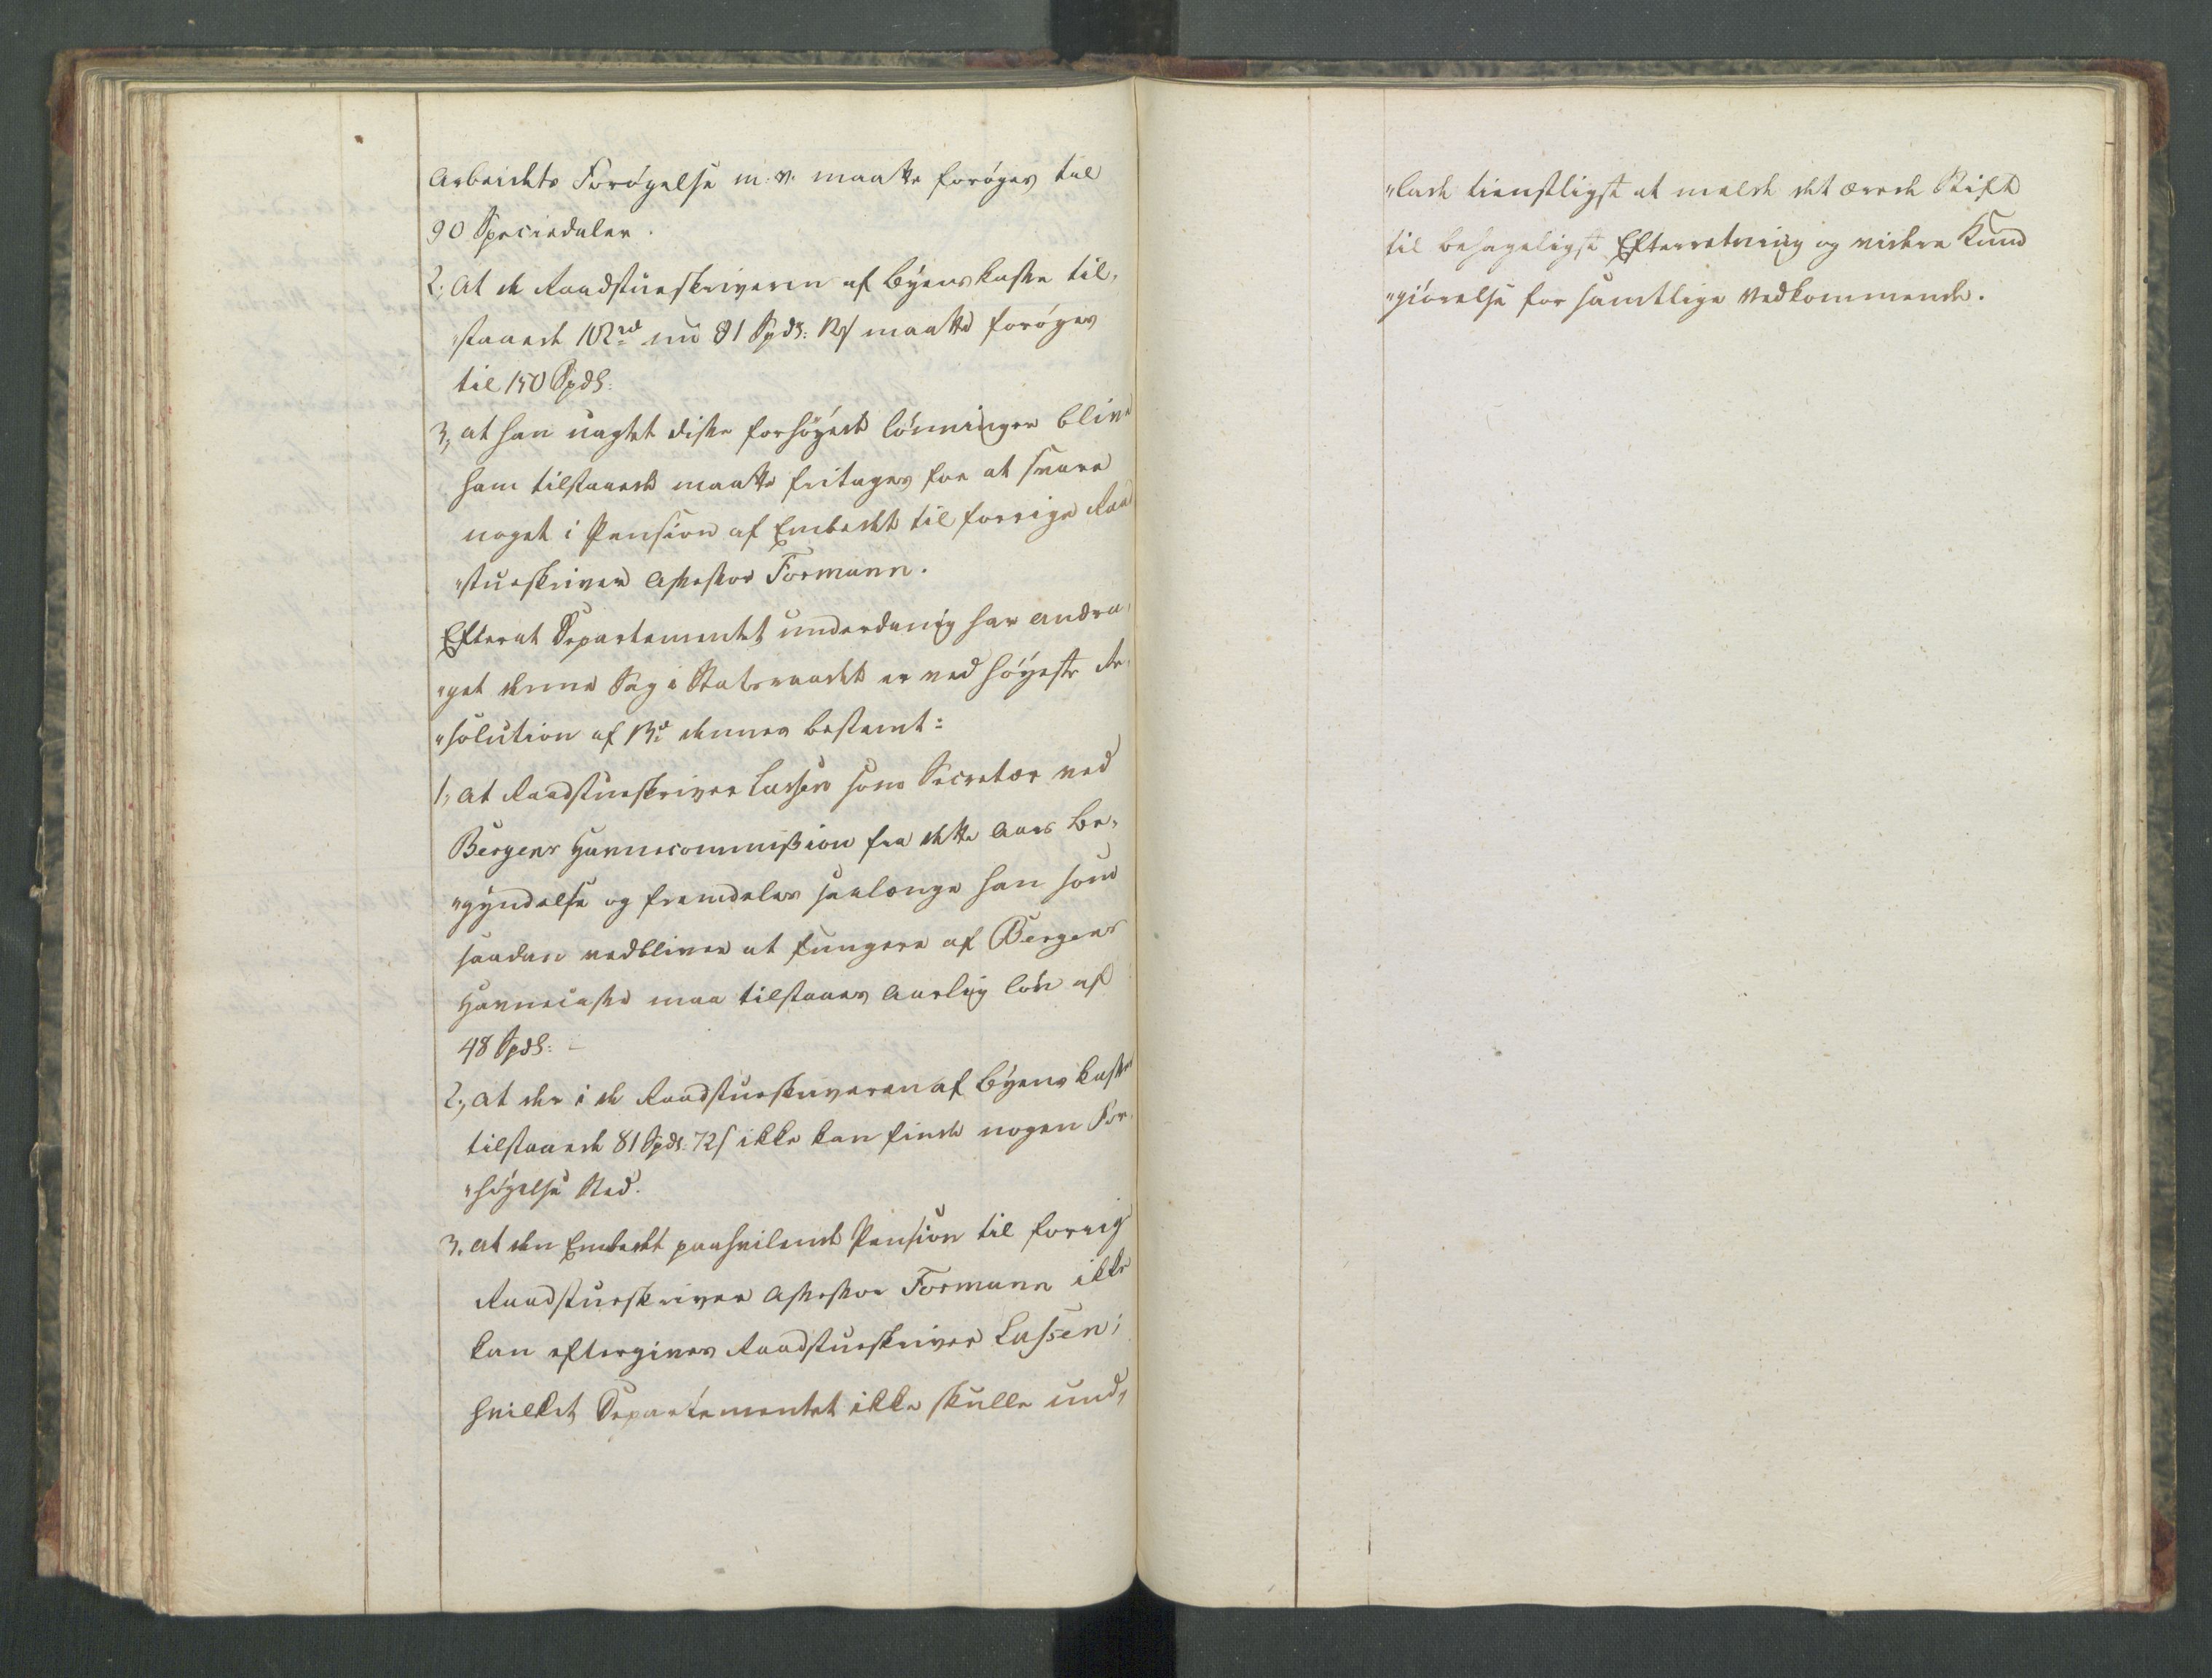 Arbeidets Forøgelse m: v. maatte forøges til
90 Speciedaler.
2, at de Raadstueskriveren af Byens Kasse til„
„staaede 102rd nu 81 Spdl: 72 s maatte forøges
til 150 Spdl:
3, at han uagtet disse forhøyede Lønninger blive
ham tilstaaede maatte fritages for at svare
noget i Pension af Embedet til forrige Raad
„stueskriver Assessor Formann.
Efterat Departementet underdanig har andra„
„get denne Sag i Statsraadet er ved høyeste Re„
„solution af 13de dennes bestemt:
1, at Raadstueskriver Lassen som Secretær ved
Bergens Havnecommission fra dette Aars Be„
„gyndelse og fremdeles saalænge han som
saadan vedbliver at fungere af Bergens
Havnecasse maa tilstaaes aarlig Løn af
48 Spdl: –
2, at der i de Raadstueskriveren af Byens Kasse
tilstaaede 81 Spdl: 72 s ikke kan finde nogen For„
„høyelse Sted.
3. at den Embedet paahvilende Pension til forrig
Raadstueskriver Assessor Formann ikke
kan eftergives Raadstueskriver Lassen;
hvilket Departementet ikke skulle und„
„lade tienstligst at melde det ærede Stift
til behageligst Efterretning og videre Kund
„giørelse for samtlige Vedkommende.